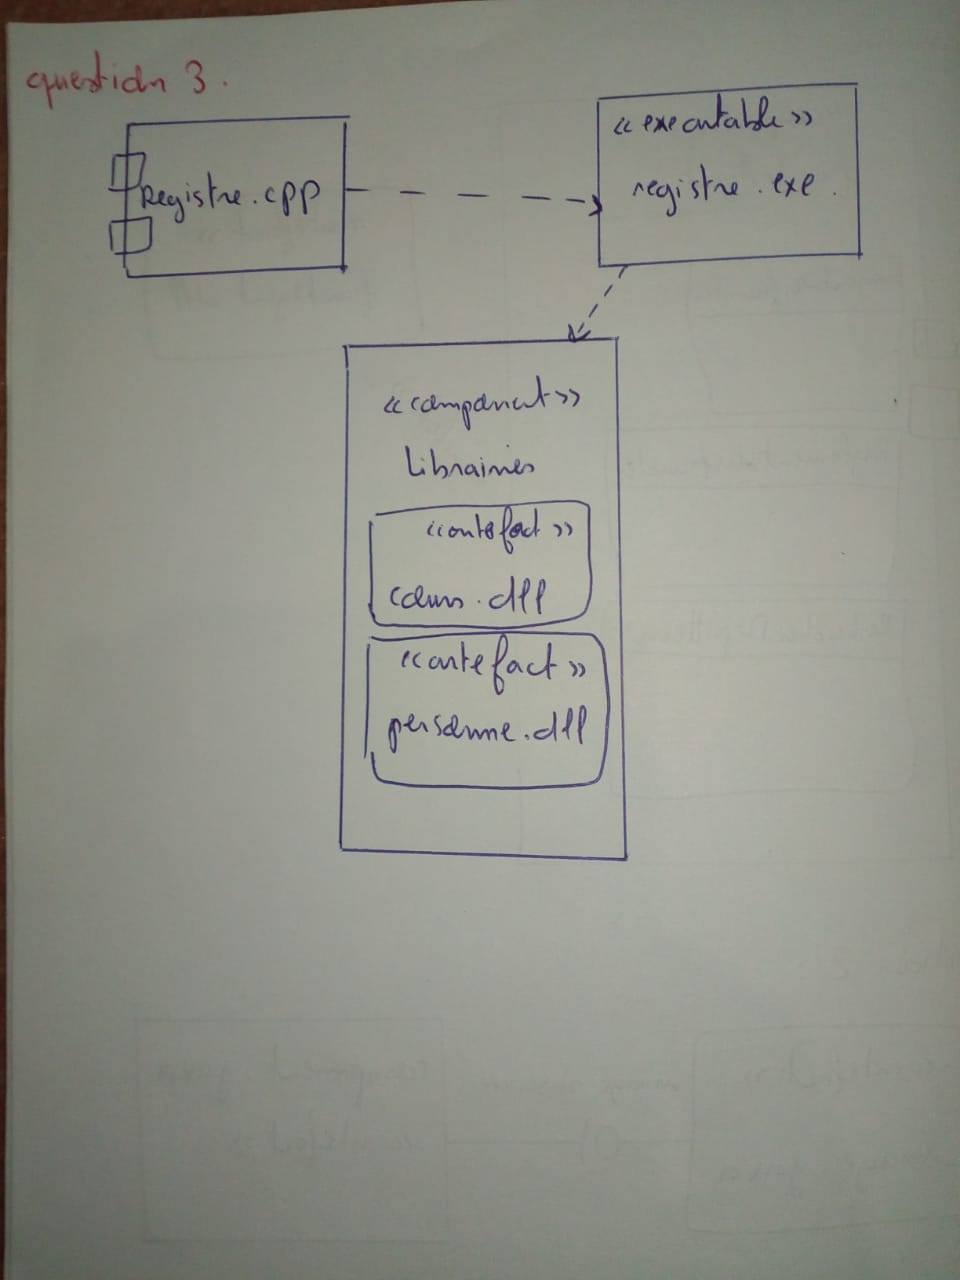 question 3.
Registre.cpp
«executable»
registre.exe.
«component»
Librairies
«artefact»
cours.dll
«artefact»
personne.dll